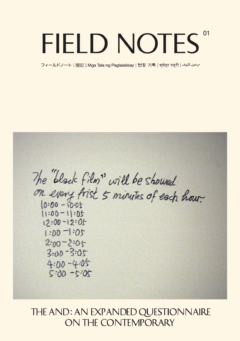 FIELD NOTES 01
フィールドノート | 田野記 | Mga Tala ng Paglalakbay | 현장 기록
The "black film" will be showed
on every first 5 minutes of each hour.
10:00 - 10:05
11:00 - 11:05
12:00 - 12:05
1:00 - 1:05
2:00 - 2:05
3:00 - 3:05
4:00 - 4:05
5:00 - 5:05
THE AND: AN EXPANDED QUESTIONNAIRE
ON THE CONTEMPORARY